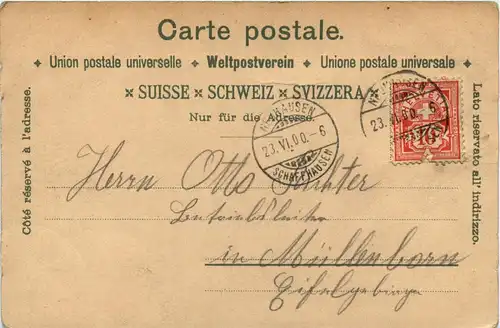 Carte postale.
✦ Union postale universelle ✦ Weltpostverein ✦ Unione postale universale ✦
× SUISSE × SCHWEIZ × SVIZZERA ×
Nur für die Adresse.
Côté réservé à l'adresse.
Lato riservato all' indirizzo.
NEUHAUSEN
23.VI.00.-6
SCHAFFHAUSEN
NEUHAUSEN
23.VI.00.-6
10
Herrn Otto Richter
Betriebsleiter
in Müllenborn
Eifelgebirge